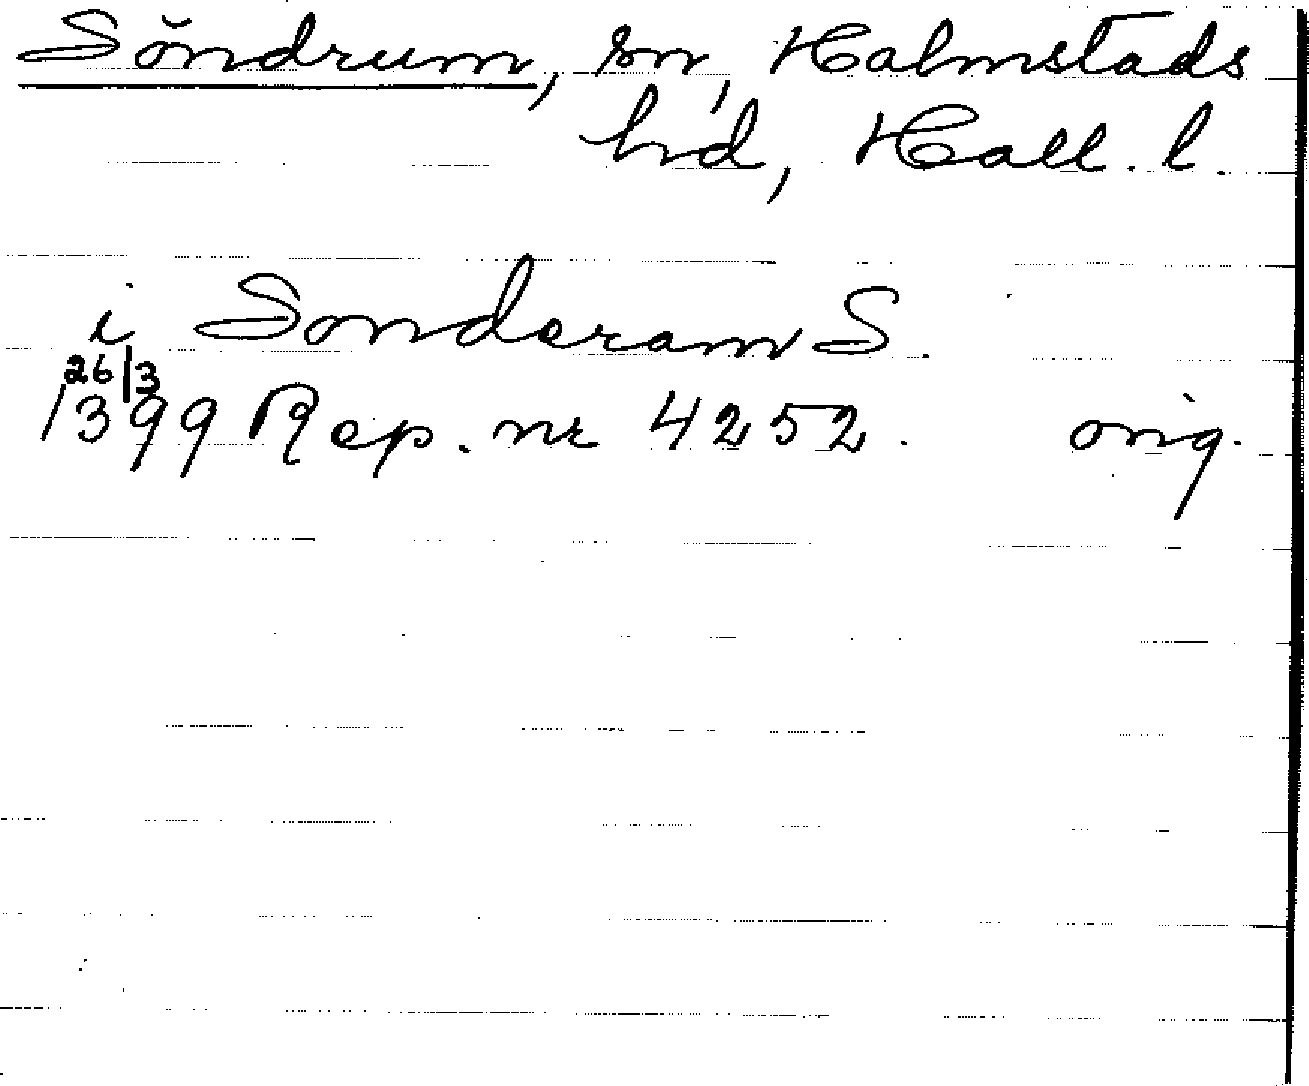 Söndrum, sn, Halmstads
hd, Hall. l.
i Sonderam S.
26/3
1399 Rep. nr 4252. orig.